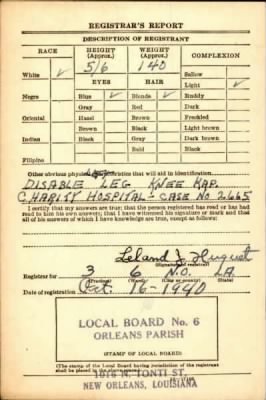 REGISTRAR'S REPORT
DESCRIPTION OF REGISTRANT
RACE HEIGHT (Approx.) WEIGHT (Approx.) COMPLEXION
5/6 140
White ✓ EYES HAIR Sallow
Light ✓
Negro Blue ✓ Blonde ✓ Ruddy
Gray Red Dark
Oriental Hazel Brown Freckled
Brown Black Light brown
Indian Black Gray Dark brown
Bald Black
Filipino
Other obvious physical characteristics that will aid in identification
DISABLE LEG KNEE KAP.
CHARITY HOSPITAL - CASE NO 2665
I certify that my answers are true; that the person registered has read or has had
read to him his own answers; that I have witnessed his signature or mark and that
all of his answers of which I have knowledge are true, except as follows:
Leland J.
(Signature of registrar)
Registrar for 3 6 N.O. LA.
(Precinct) (Ward) (City or county) (State)
Date of registration Oct. 16-1940
LOCAL BOARD No. 6
ORLEANS PARISH
(STAMP OF LOCAL BOARD)
(The stamp of the Local Board having jurisdiction of the registrant
shall be placed in the above space.)
1016 N. TONTI ST.
NEW ORLEANS, LOUISIANA